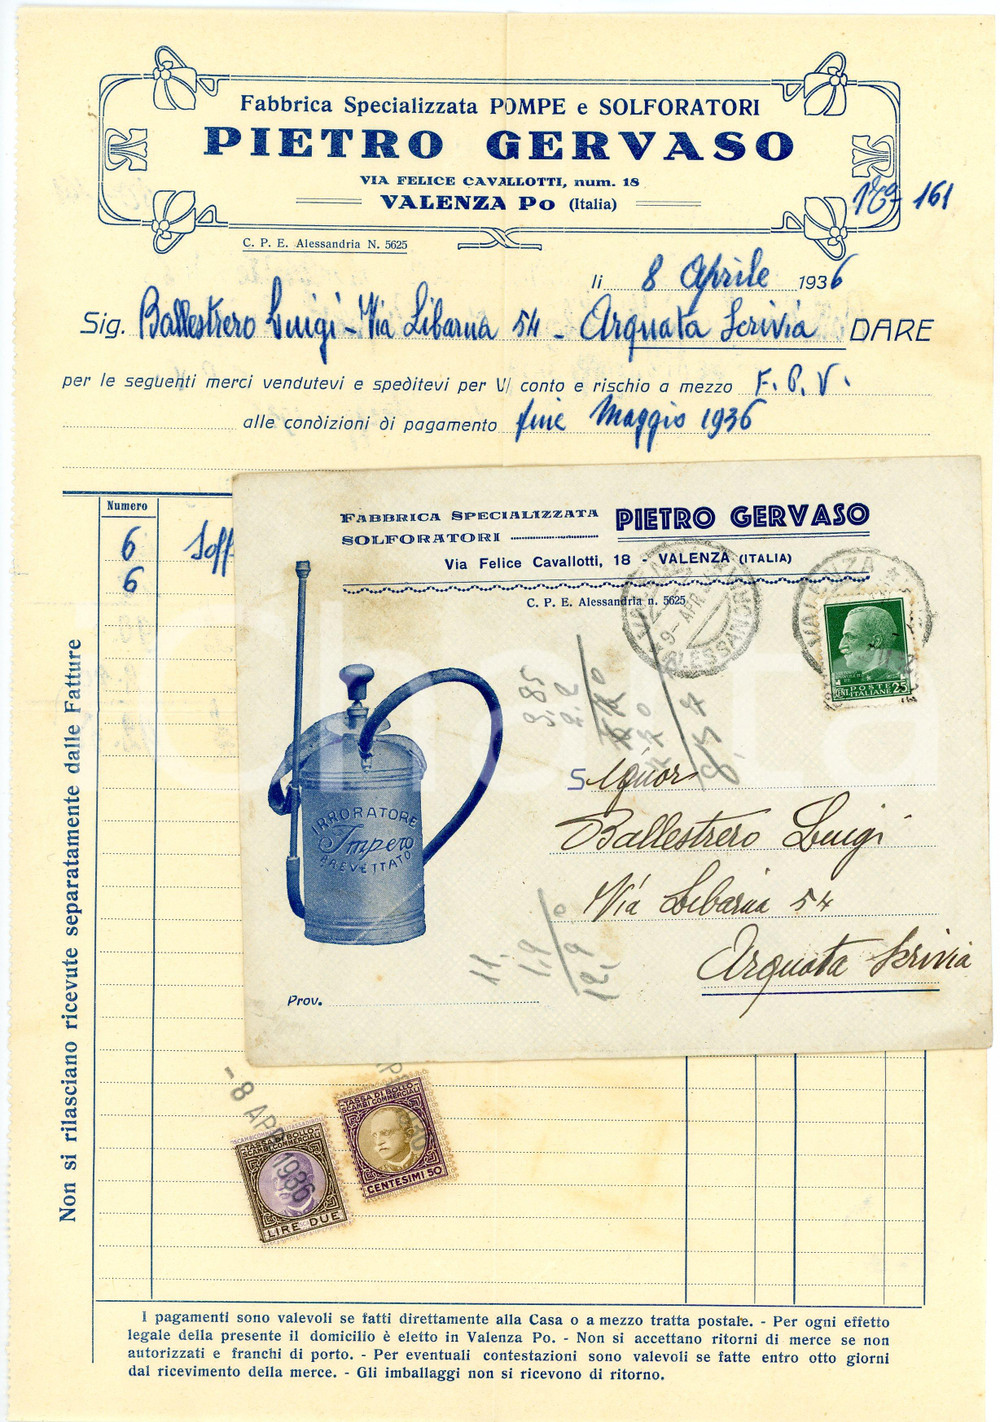 Fabbrica Specializzata POMPE e SOLFORATORI
PIETRO GERVASO
VIA FELICE CAVALLOTTI, num. 18
VALENZA Po (Italia)
161
C. P. E. Alessandria N. 5625
li 8 Aprile 1936
Sig. Ballestrero Luigi - Via Libarna 54 - Arquata Scrivia DARE
per le seguenti merci vendutevi e speditevi per V/ conto e rischio a mezzo F. P. V.
alle condizioni di pagamento fine Maggio 1936
Numero
6 Soff
6
Non si rilasciano ricevute separatamente dalle Fatture
FABBRICA SPECIALIZZATA
SOLFORATORI
PIETRO GERVASO
Via Felice Cavallotti, 18 VALENZA (ITALIA)
C. P. E. Alessandria n. 5625
VALENZA
9 - APR
ALESSANDRIA
VALENZA
POSTE
ITALIANE 25
IRRORATORE
Impero
BREVETTATO
Signor
Ballestrero Luigi
Via Libarna 54
Arquata Scrivia
Prov.
11.
1,9
12,9
- 8 APR 1936
TASSA DI BOLLO
SCAMBI COMMERCIALI
LIRE DUE
TASSA DI BOLLO
SCAMBI COMMERCIALI
CENTESIMI 50
I pagamenti sono valevoli se fatti direttamente alla Casa o a mezzo tratta postale. - Per ogni effetto
legale della presente il domicilio è eletto in Valenza Po. - Non si accettano ritorni di merce se non
autorizzati e franchi di porto. - Per eventuali contestazioni sono valevoli se fatte entro otto giorni
dal ricevimento della merce. - Gli imballaggi non si ricevono di ritorno.